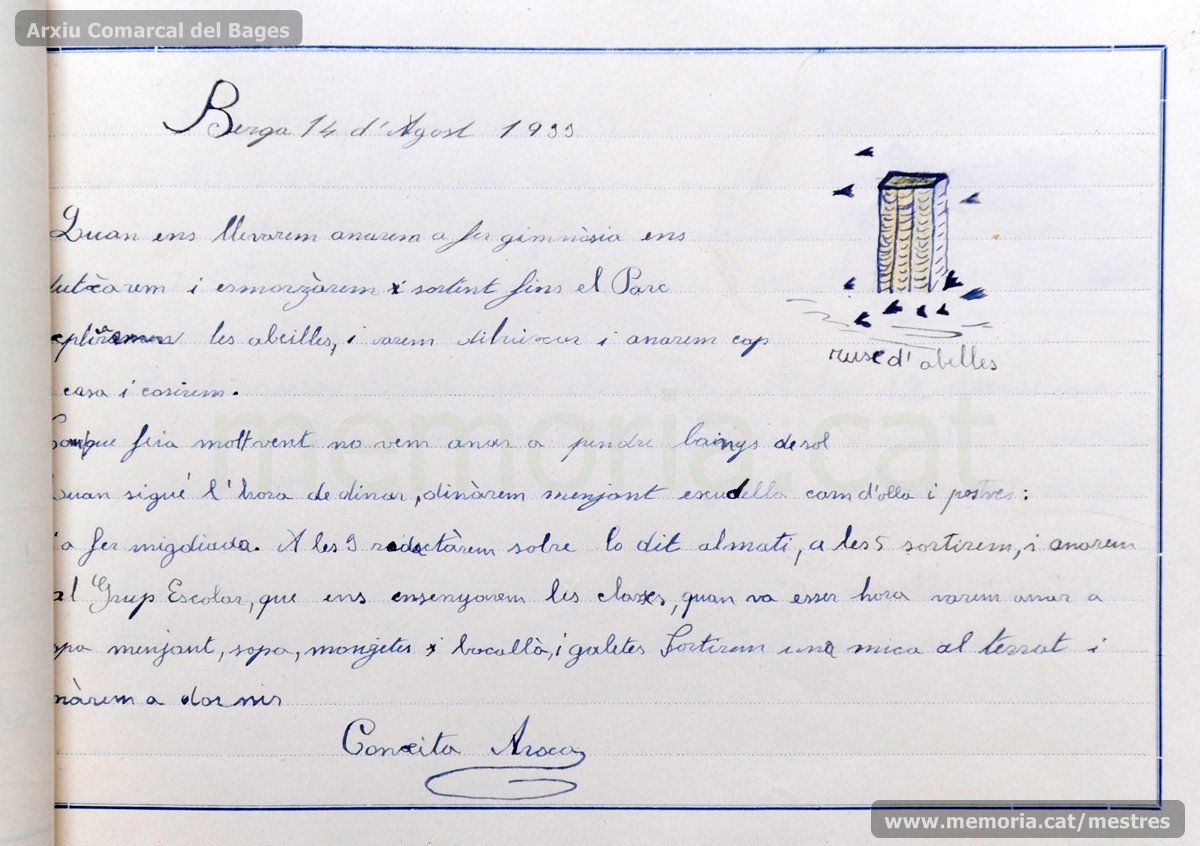 Arxiu Comarcal del Bages
Berga 14 d'Agost 1933
Quan ens llevarem anarem a fer gimnàsia ens
dutxarem i esmorzàrem i sortint fins el Parc
les abeilles, i varem dibuixar i anarem cap
casa i cosirem.
Com que feia molt vent no vem anar a pendre bainys de sol
Quan sigué l'hora de dinar, dinàrem menjant escudella carn d'olla i postres:
i a fer migdiada. A les 3 redactàrem sobre lo dit al mati, a les 5 sortirem, i anarem
al Grup Escolar, que ens ensenyarem les classes, quan va esser hora varem anar a
menjant, sopa, mongetes i bacallà, i galetes Sortirem una mica al terrat i
nàrem a dormir
Conxita Aroca
rusc d'abelles
memoria.cat
www.memoria.cat/mestres